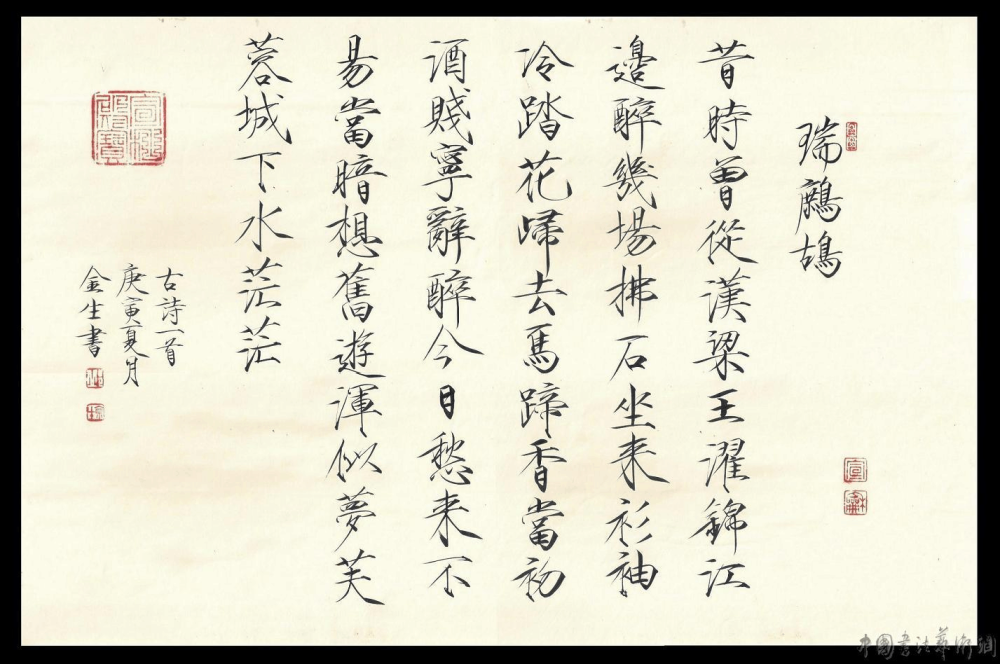 瑞鷓鴣
昔時曾從漢梁王濯錦江
邊醉幾場拂石坐来衫袖
冷踏花歸去馬蹄香當初
酒賤寧辭醉今日愁来不
易當暗想舊遊渾似夢芙
蓉城下水茫茫
古詩一首
庚寅夏月
金生書
中國書法藝術網